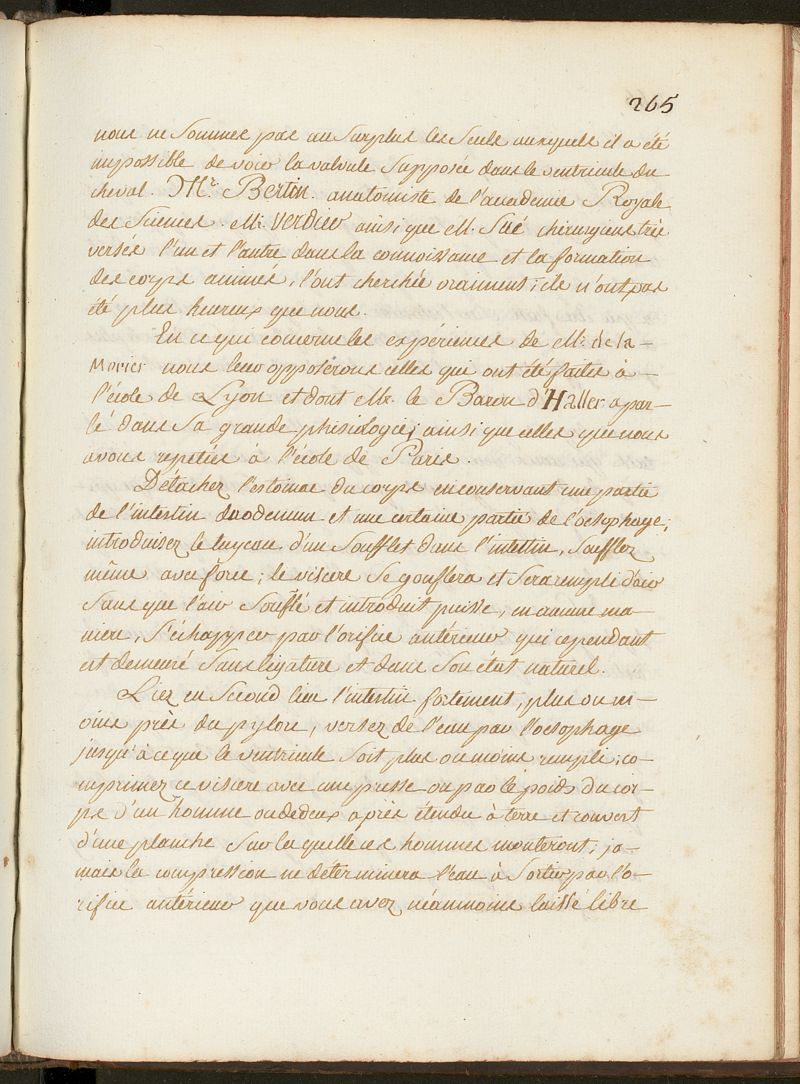 265
nous ne sommes pas au surplus les seuls auxquels il a été
impossible de voir la valvule supposée dans le ventricule du
cheval. Mr. Bertin. anatomiste de l'académie Royale
des sciences. M. verdier ainsi que M. Suë chirurgiens très
versés l'un et l'autre dans la connoissance et la formation
des corps animés, l'ont cherchée vraiment; ils n'ont pas
été plus heureux que nous.
En ce qui concerne les expériences de M. de la-
Morier nous leur opposerons celles qui ont été faites à
l'école de Lyon et dont Mr. le Baron d'Haller a par-
lé dans sa grande phisiologie; ainsi que celles que nous
avons repetées à l'école de Paris.
Détachez l'estomac du corps en conservant une partie
de l'intestin duodenum et une certaine partie de l'oesophage;
introduisez le tuyeau d'un soufflet dans l'intestin, soufflez
même avec force; le viscere se gonflera et sera rempli d'air
sans que l'air soufflé et introduit puisse, en aucune ma-
niere, s'échapper par l'orifice antérieur qui cependant
est demeuré sans ligature et dans son état naturel.
Liez en second lieu l'intestin fortement, plus ou m-
oins près du pylore, versez de l'eau par l'oesophage
jusqu'à ce que le ventricule soit plus ou moins rempli; co-
mprimez ce viscere avec une presse ou par le poids du cor-
ps d'un homme ou de deux après étendu à terre et couvert
d'une planche sur la quelle ces hommes monteront; ja-
mais la compression ne déterminera l'eau à sortir par l'o-
rifice antérieur que vous avez néanmoins laissé libre